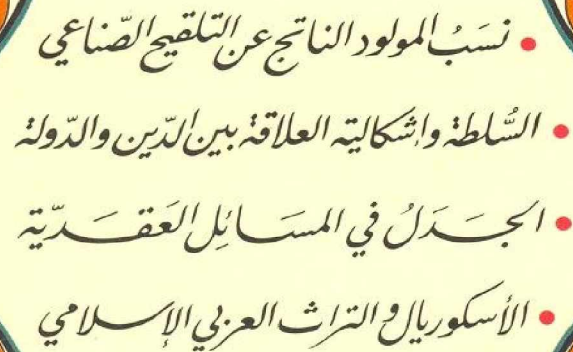 • نسَبُ المولود الناتج عن التلقيح الصّناعي
• السُّلطة وإشكالية العلاقة بين الدّين والدّولة
• الجَدَلُ في المسَائِل العَقَدّية
• الأسكوريال والتراث العربي الإسلامي